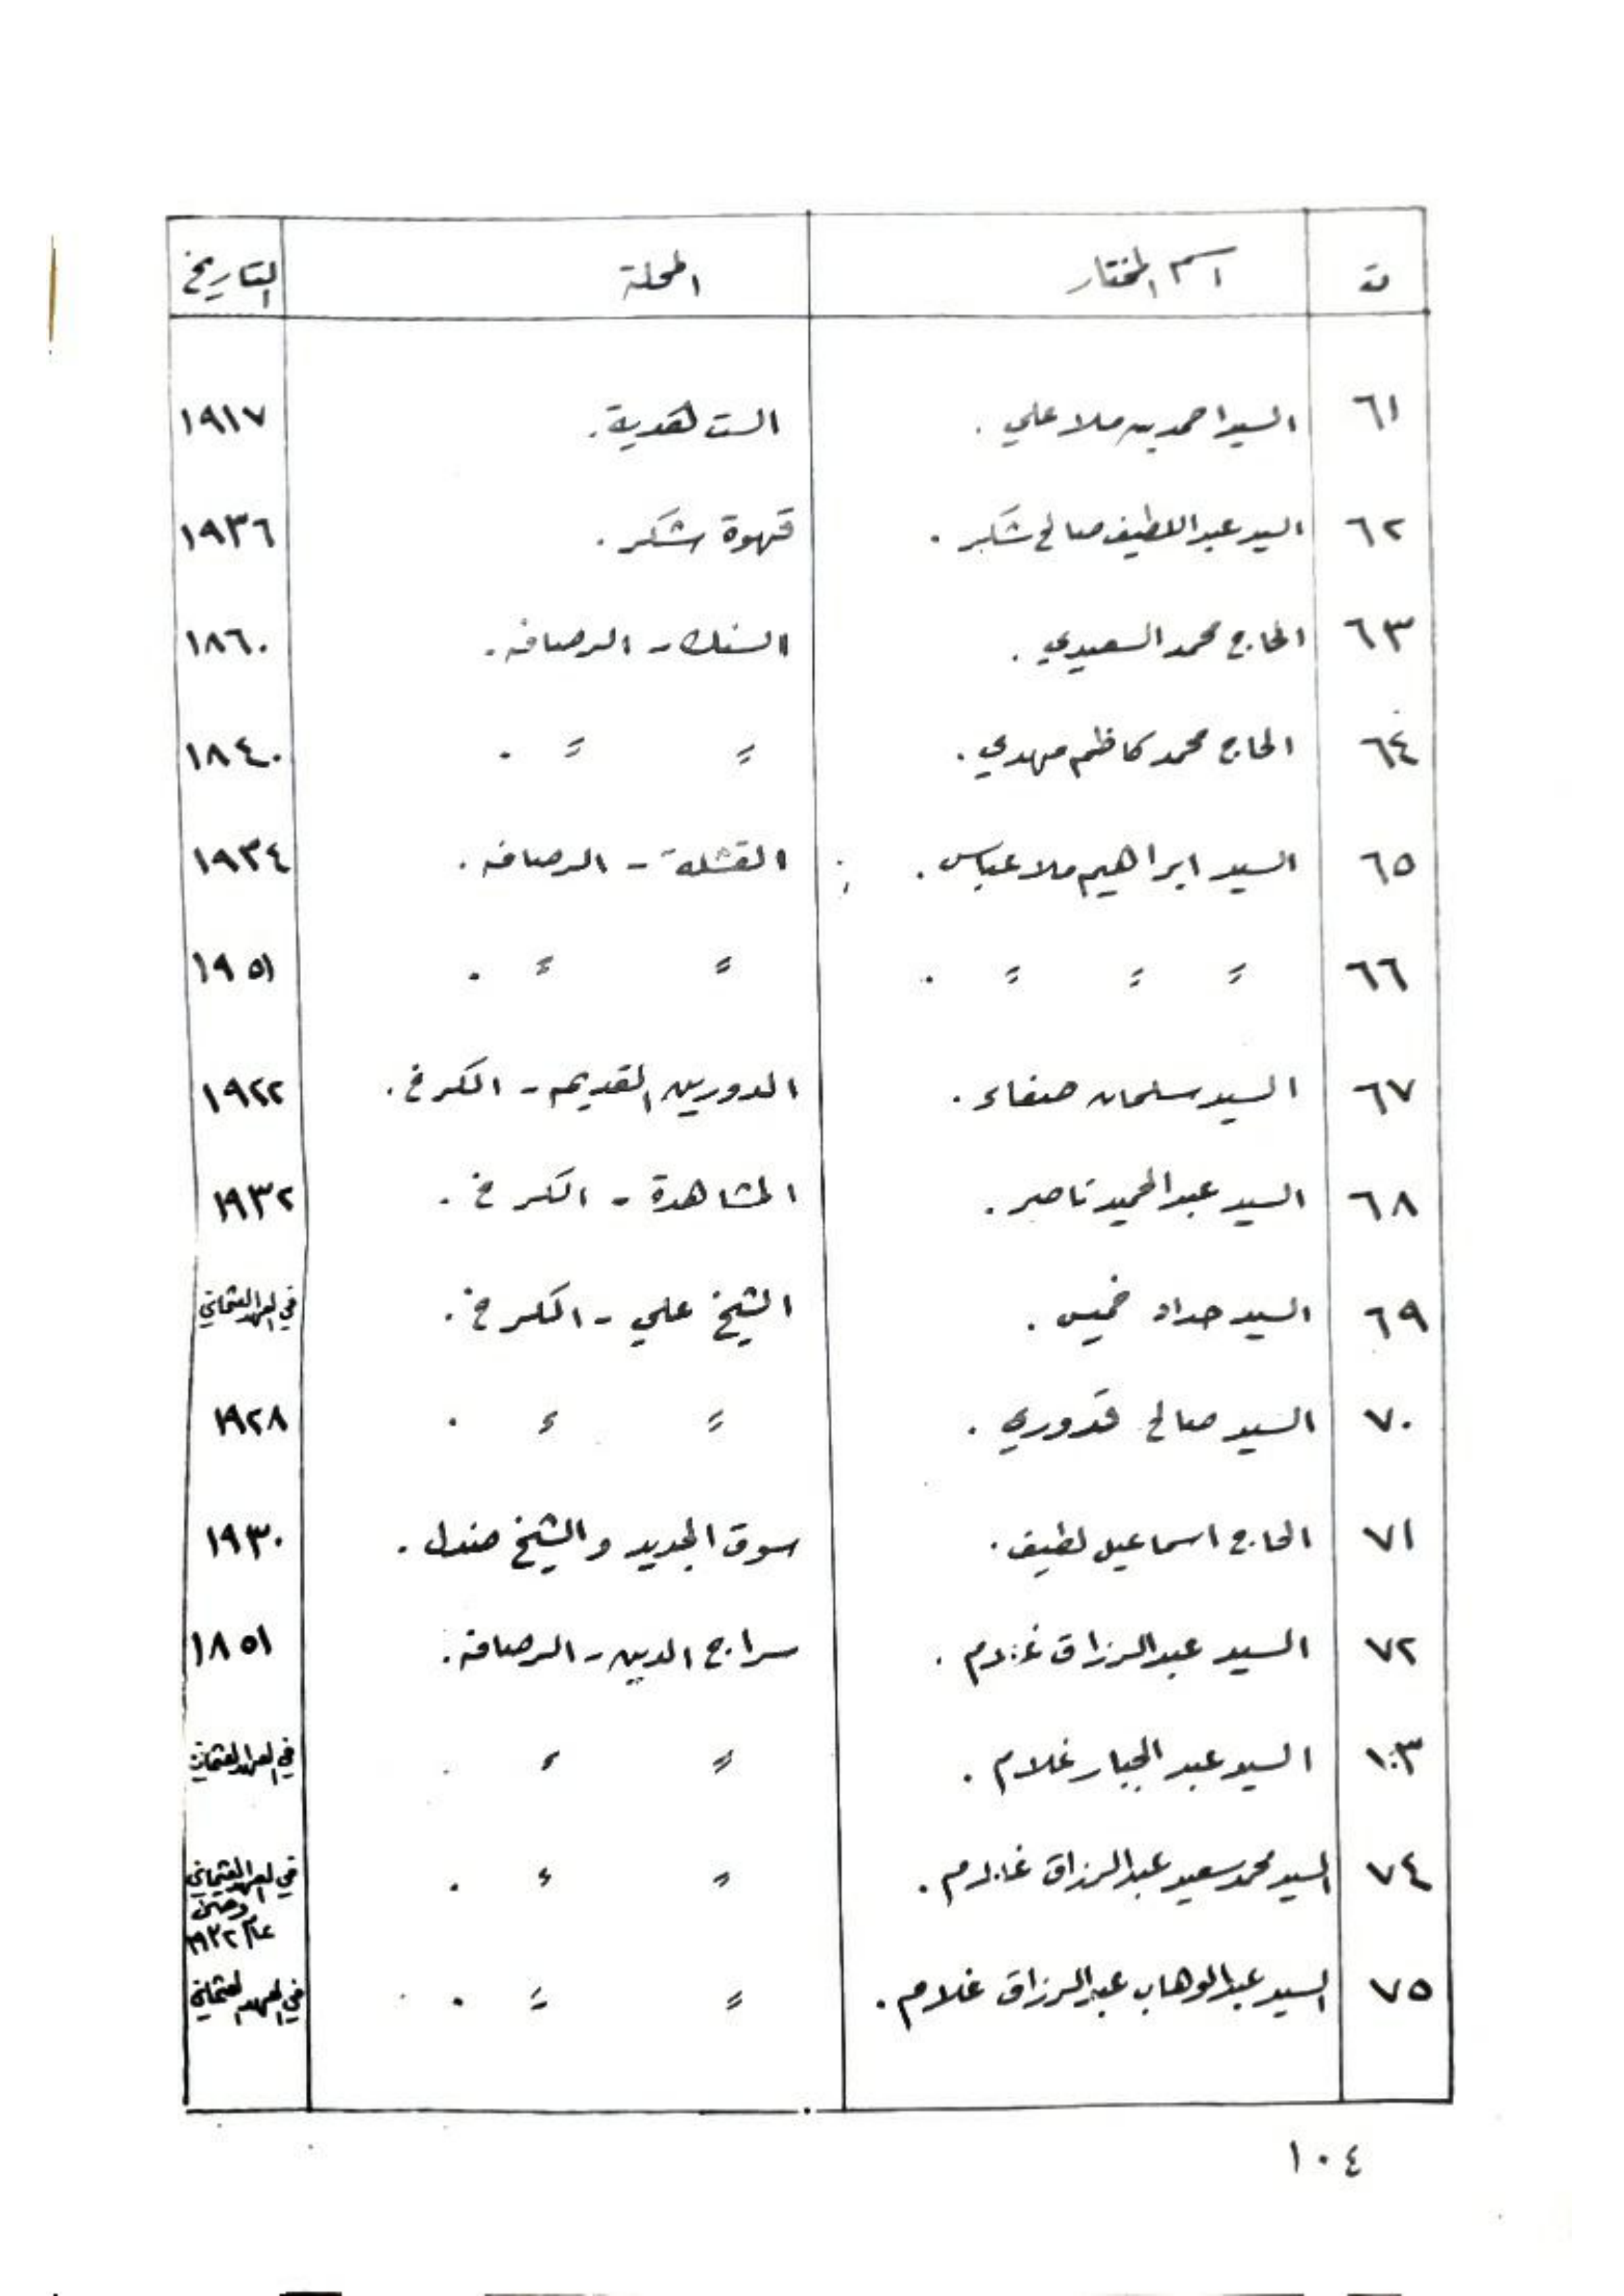 ت اسم المختار المحلة التاريخ
٦١ السيد احمد بن ملا علي . الست هدية . ١٩١٧
٦٢ السيد عبد اللطيف صالح شكر . قهوة شكر . ١٩٣٦
٦٣ الحاج محمد السعيدي . السنك - الرصافة . ١٨٦٠
٦٤ الحاج محمد كاظم مهدي . = = . ١٨٤٠
٦٥ السيد ابراهيم ملا عباس . القشلة - الرصافة . ١٩٣٤
٦٦ = = = . = = . ١٩٥١
٦٧ السيد سلمان صفاء . الدوريين القديمة - الكرخ . ١٩٢٢
٦٨ السيد عبد الحميد ناصر . المشاهدة - الكرخ . ١٩٣٢
٦٩ السيد حداد خميس . الشيخ علي - الكرخ . في العهد العثماني
٧٠ السيد صالح قدوري . = = . ١٩٢٨
٧١ الحاج اسماعيل لطيف . سوق الجديد والشيخ صندل . ١٩٣٠
٧٢ السيد عبد الرزاق غلام . سراج الدين - الرصافة . ١٨٥١
١٠٣ السيد عبد الجبار غلام . = = . في العهد العثماني
٧٤ السيد محمد سعيد عبد الرزاق غلام . = = . في العهد العثماني
وحتى
عام ١٩٣٢
٧٥ السيد عبد الوهاب عبد الرزاق غلام . = = . في العهد العثماني
١٠٤